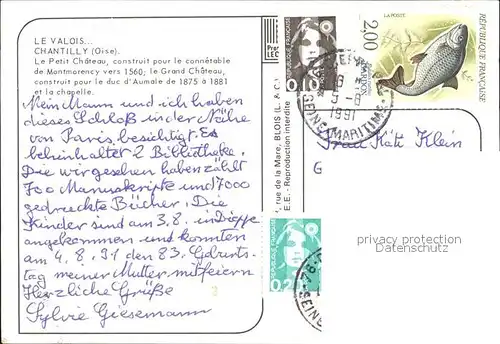 LE VALOIS...
CHANTILLY (Oise).
Le Petit Château, construit pour le connétable
de Montmorency vers 1560; le Grand Château,
construit pour le duc d'Aumale de 1875 à 1881
et la chapelle.
Mein Mann und ich haben
dieses Schloß in der Nähe
von Paris besichtigt. Es
beinhaltet 2 Bibliotheke.
Die wir gesehen haben zählt
700 Manuskripte und 7000
gedruckte Bücher. Die
Kinder sind am 3.8. in Dieppe
angekommen und konnten
am 4.8.91 den 83. Geburts-
tag meiner Mutter mitfeiern
Herzliche Grüße
Sylvie Giesemann
rue de la Mare, BLOIS (L. & C.)
E.E. - Reproduction interdite
REPUBLIQUE FRANÇAISE
0,10
LA POSTE
2,00
REPUBLIQUE FRANÇAISE
5-8
1991
SEINE MARITIME
Frau Käti Klein
G
REPUBLIQUE FRANÇAISE
0,20
privacy protection
Datenschutz